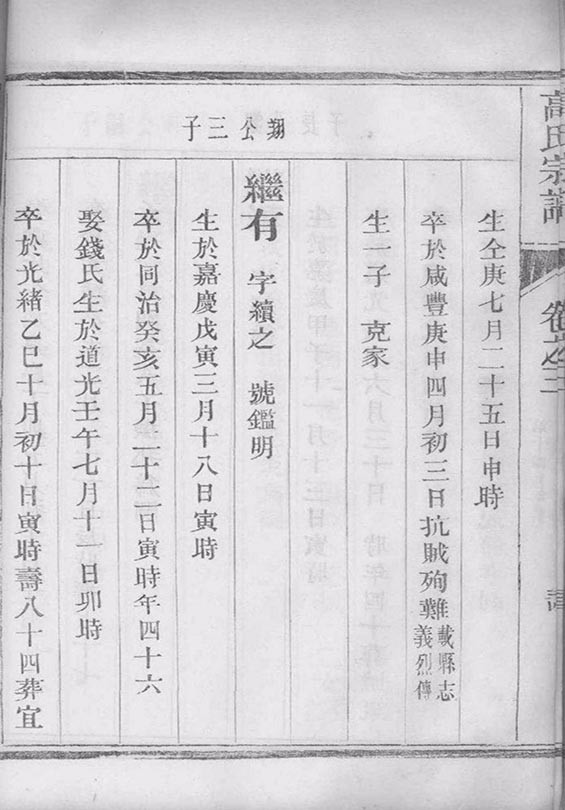 高氏宗譜
卷之三
生仝庚七月二十五日申時
卒於咸豐庚申四月初三日抗賊殉難載縣志義烈傳
生一子 克家
翔公三子
繼有 字續之 號鑑明
生於嘉慶戊寅三月十八日寅時
卒於同治癸亥五月二十二日寅時年四十六
娶錢氏生於道光壬午七月十二日卯時
卒於光緒乙巳十月初十日寅時壽八十四葬宜